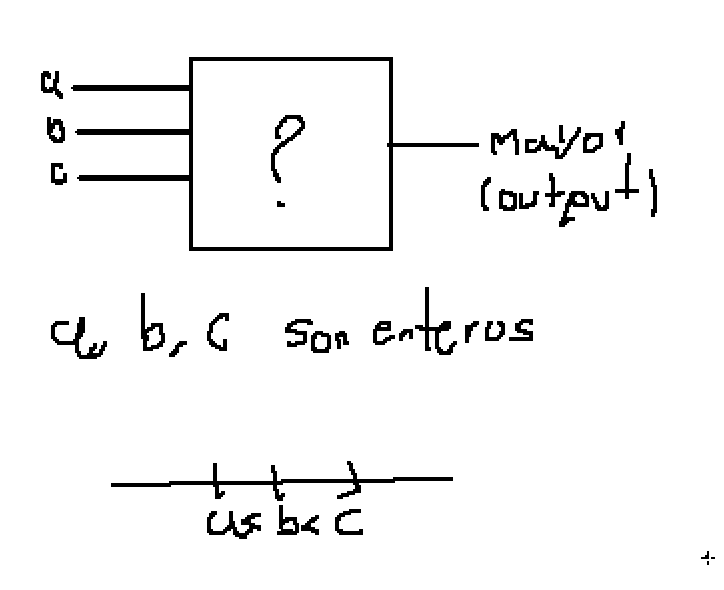 a
b
c
?
Mayor
(output)
a, b, c son enteros
a< b< c